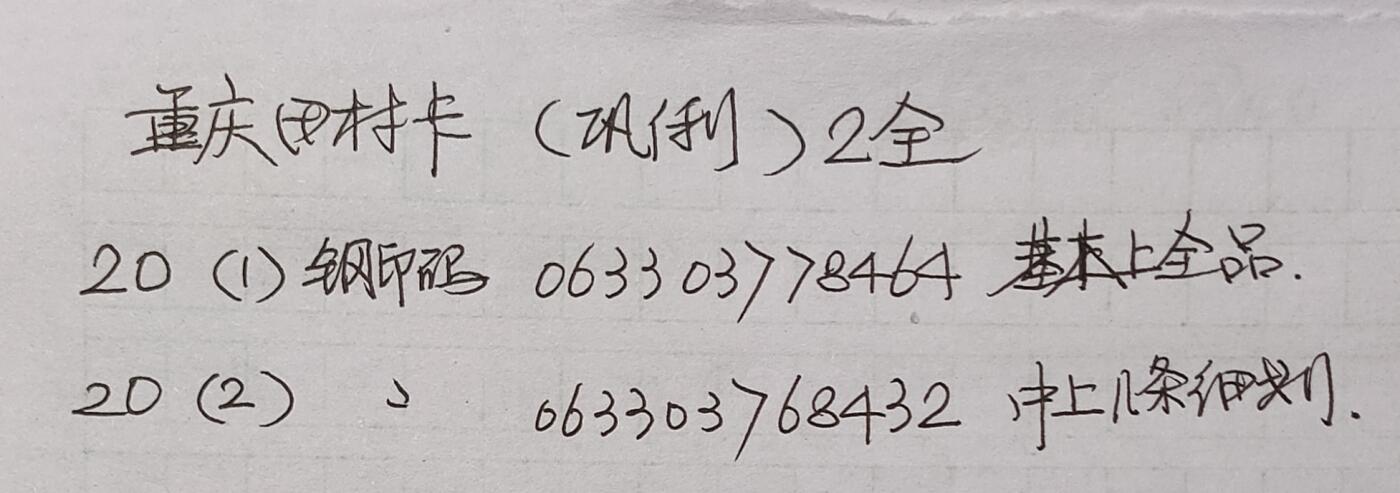 重庆田村卡（巩俐）2全
20（1）钢印码 063303778464 基本上全品.
20（2） 〃 063303768432 中上几条细划.